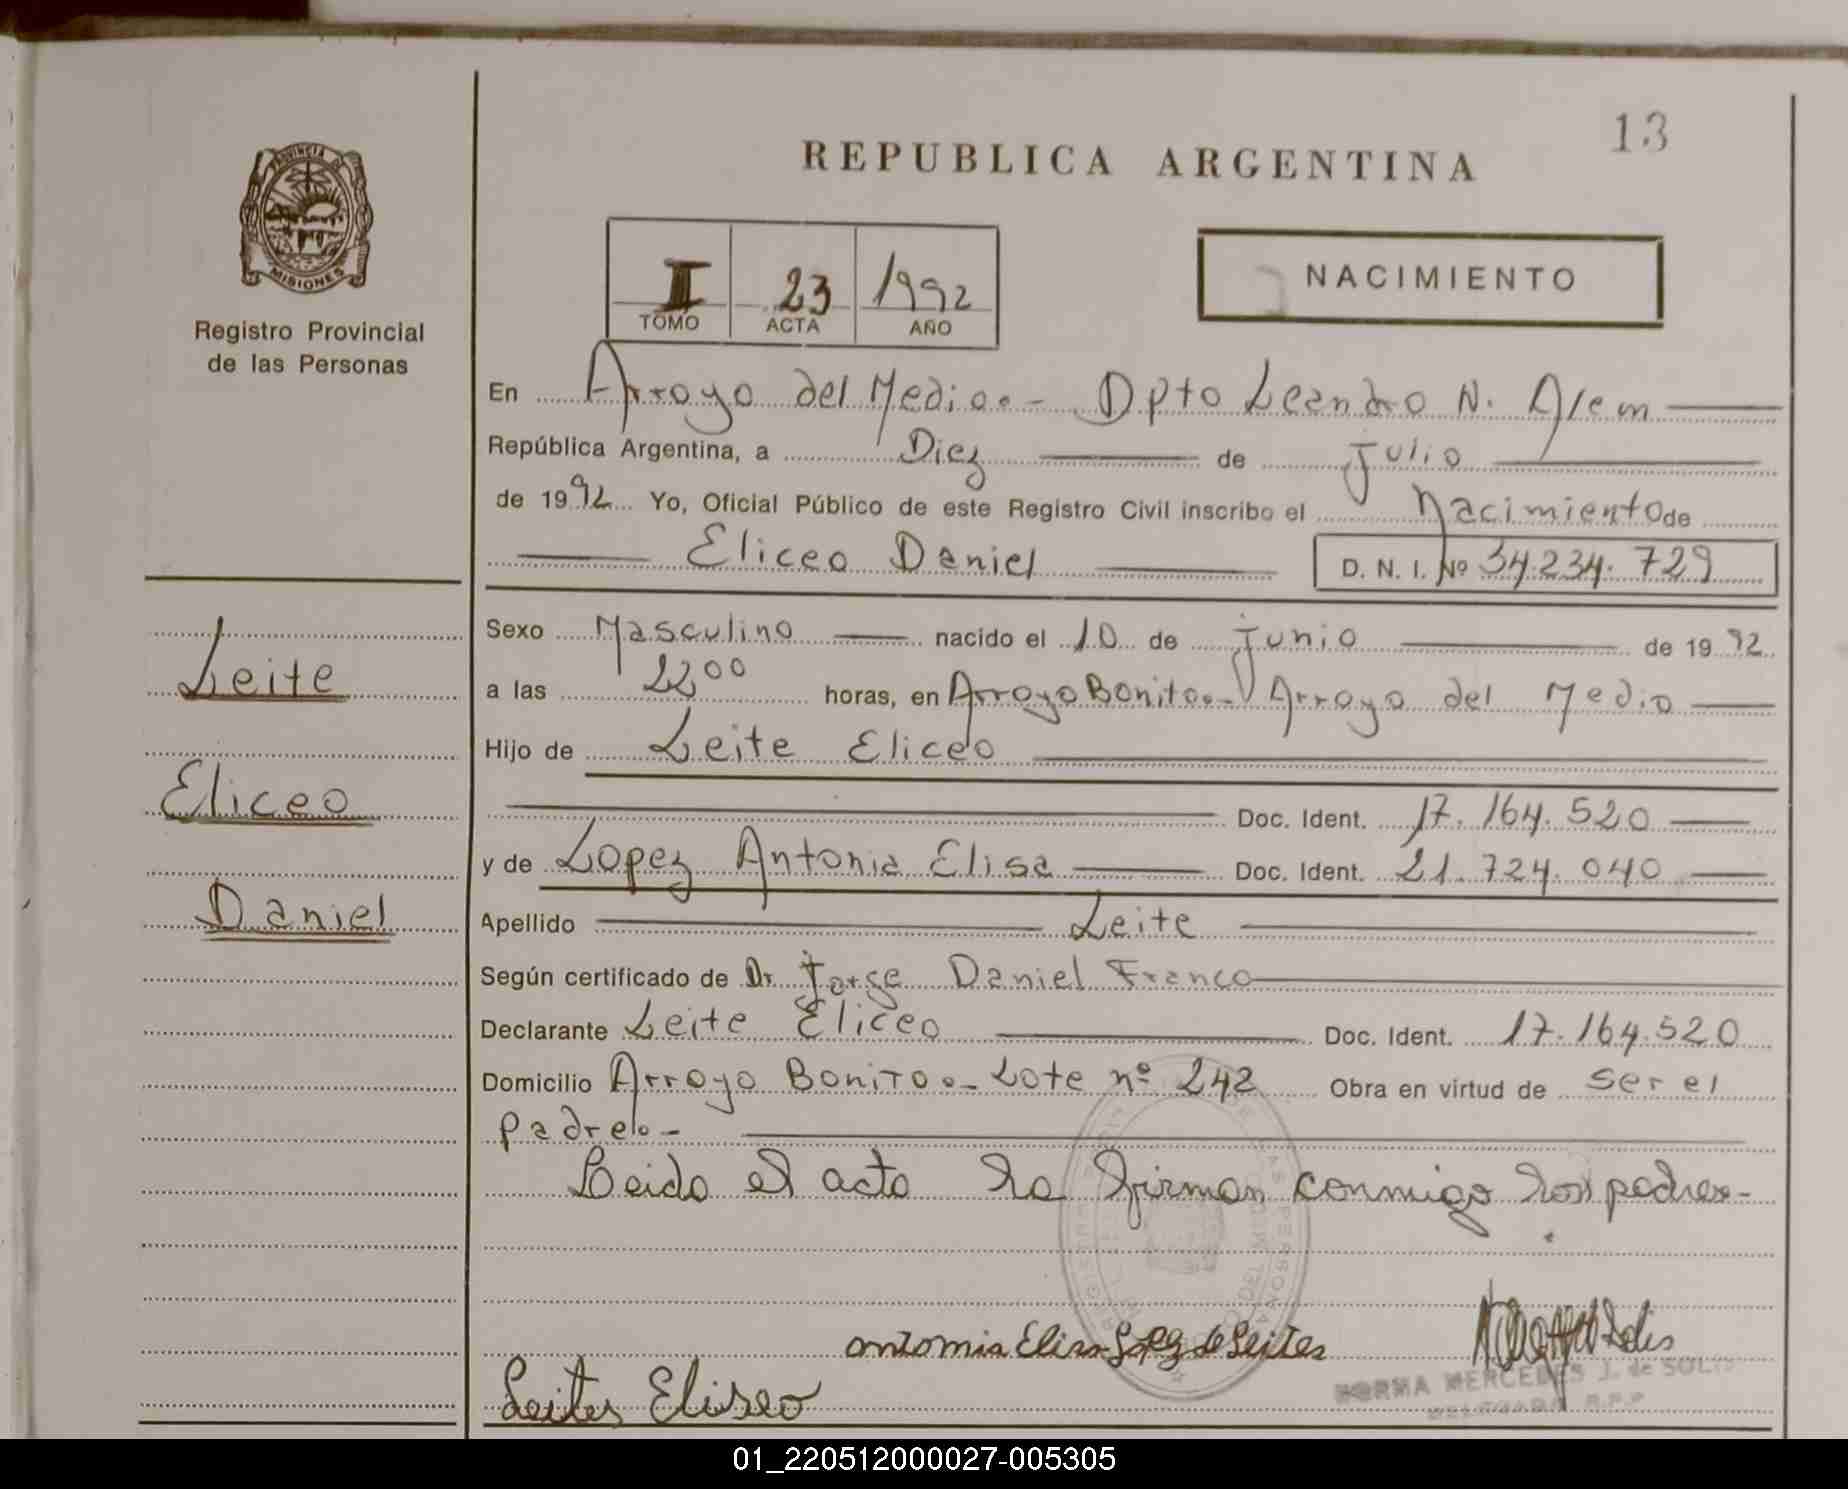 13
REPUBLICA ARGENTINA
PROVINCIA DE
MISIONES
Registro Provincial
de las Personas
I 23 1992
TOMO ACTA AÑO
NACIMIENTO
En Arroyo del Medio.- Dpto Leandro N. Alem
República Argentina, a Diez de julio
de 1992 Yo, Oficial Público de este Registro Civil inscribo el Nacimiento de
Eliceo Daniel D. N. I. Nº 34.234.729
Leite
Eliceo
Daniel
Sexo Masculino nacido el 10 de junio de 1992
a las 2200 horas, en Arroyo Bonito.- Arroyo del Medio
Hijo de Leite Eliceo
Doc. Ident. 17.164.520
y de Lopez Antonia Elisa Doc. Ident. 21.724.040
Apellido Leite
Según certificado de Dr. Jorge Daniel Franco
Declarante Leite Eliceo Doc. Ident. 17.164.520
Domicilio Arroyo Bonito.- Lote nº 242 Obra en virtud de ser el
padre.-
Leida el acta la firman conmigo los padres-
Antonia Elisa Lopez de Leites
Leites Eliseo
NORMA MERCEDES J. de SOLIS
R.P.P
01_220512000027-005305